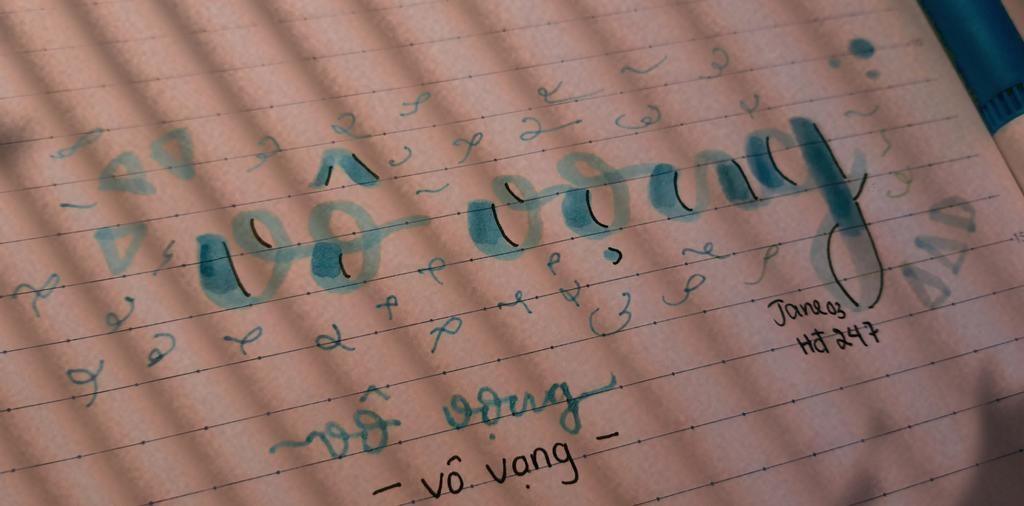 vô vọng
Jane03
Hđ 247
vô vọng
- vô vạng -